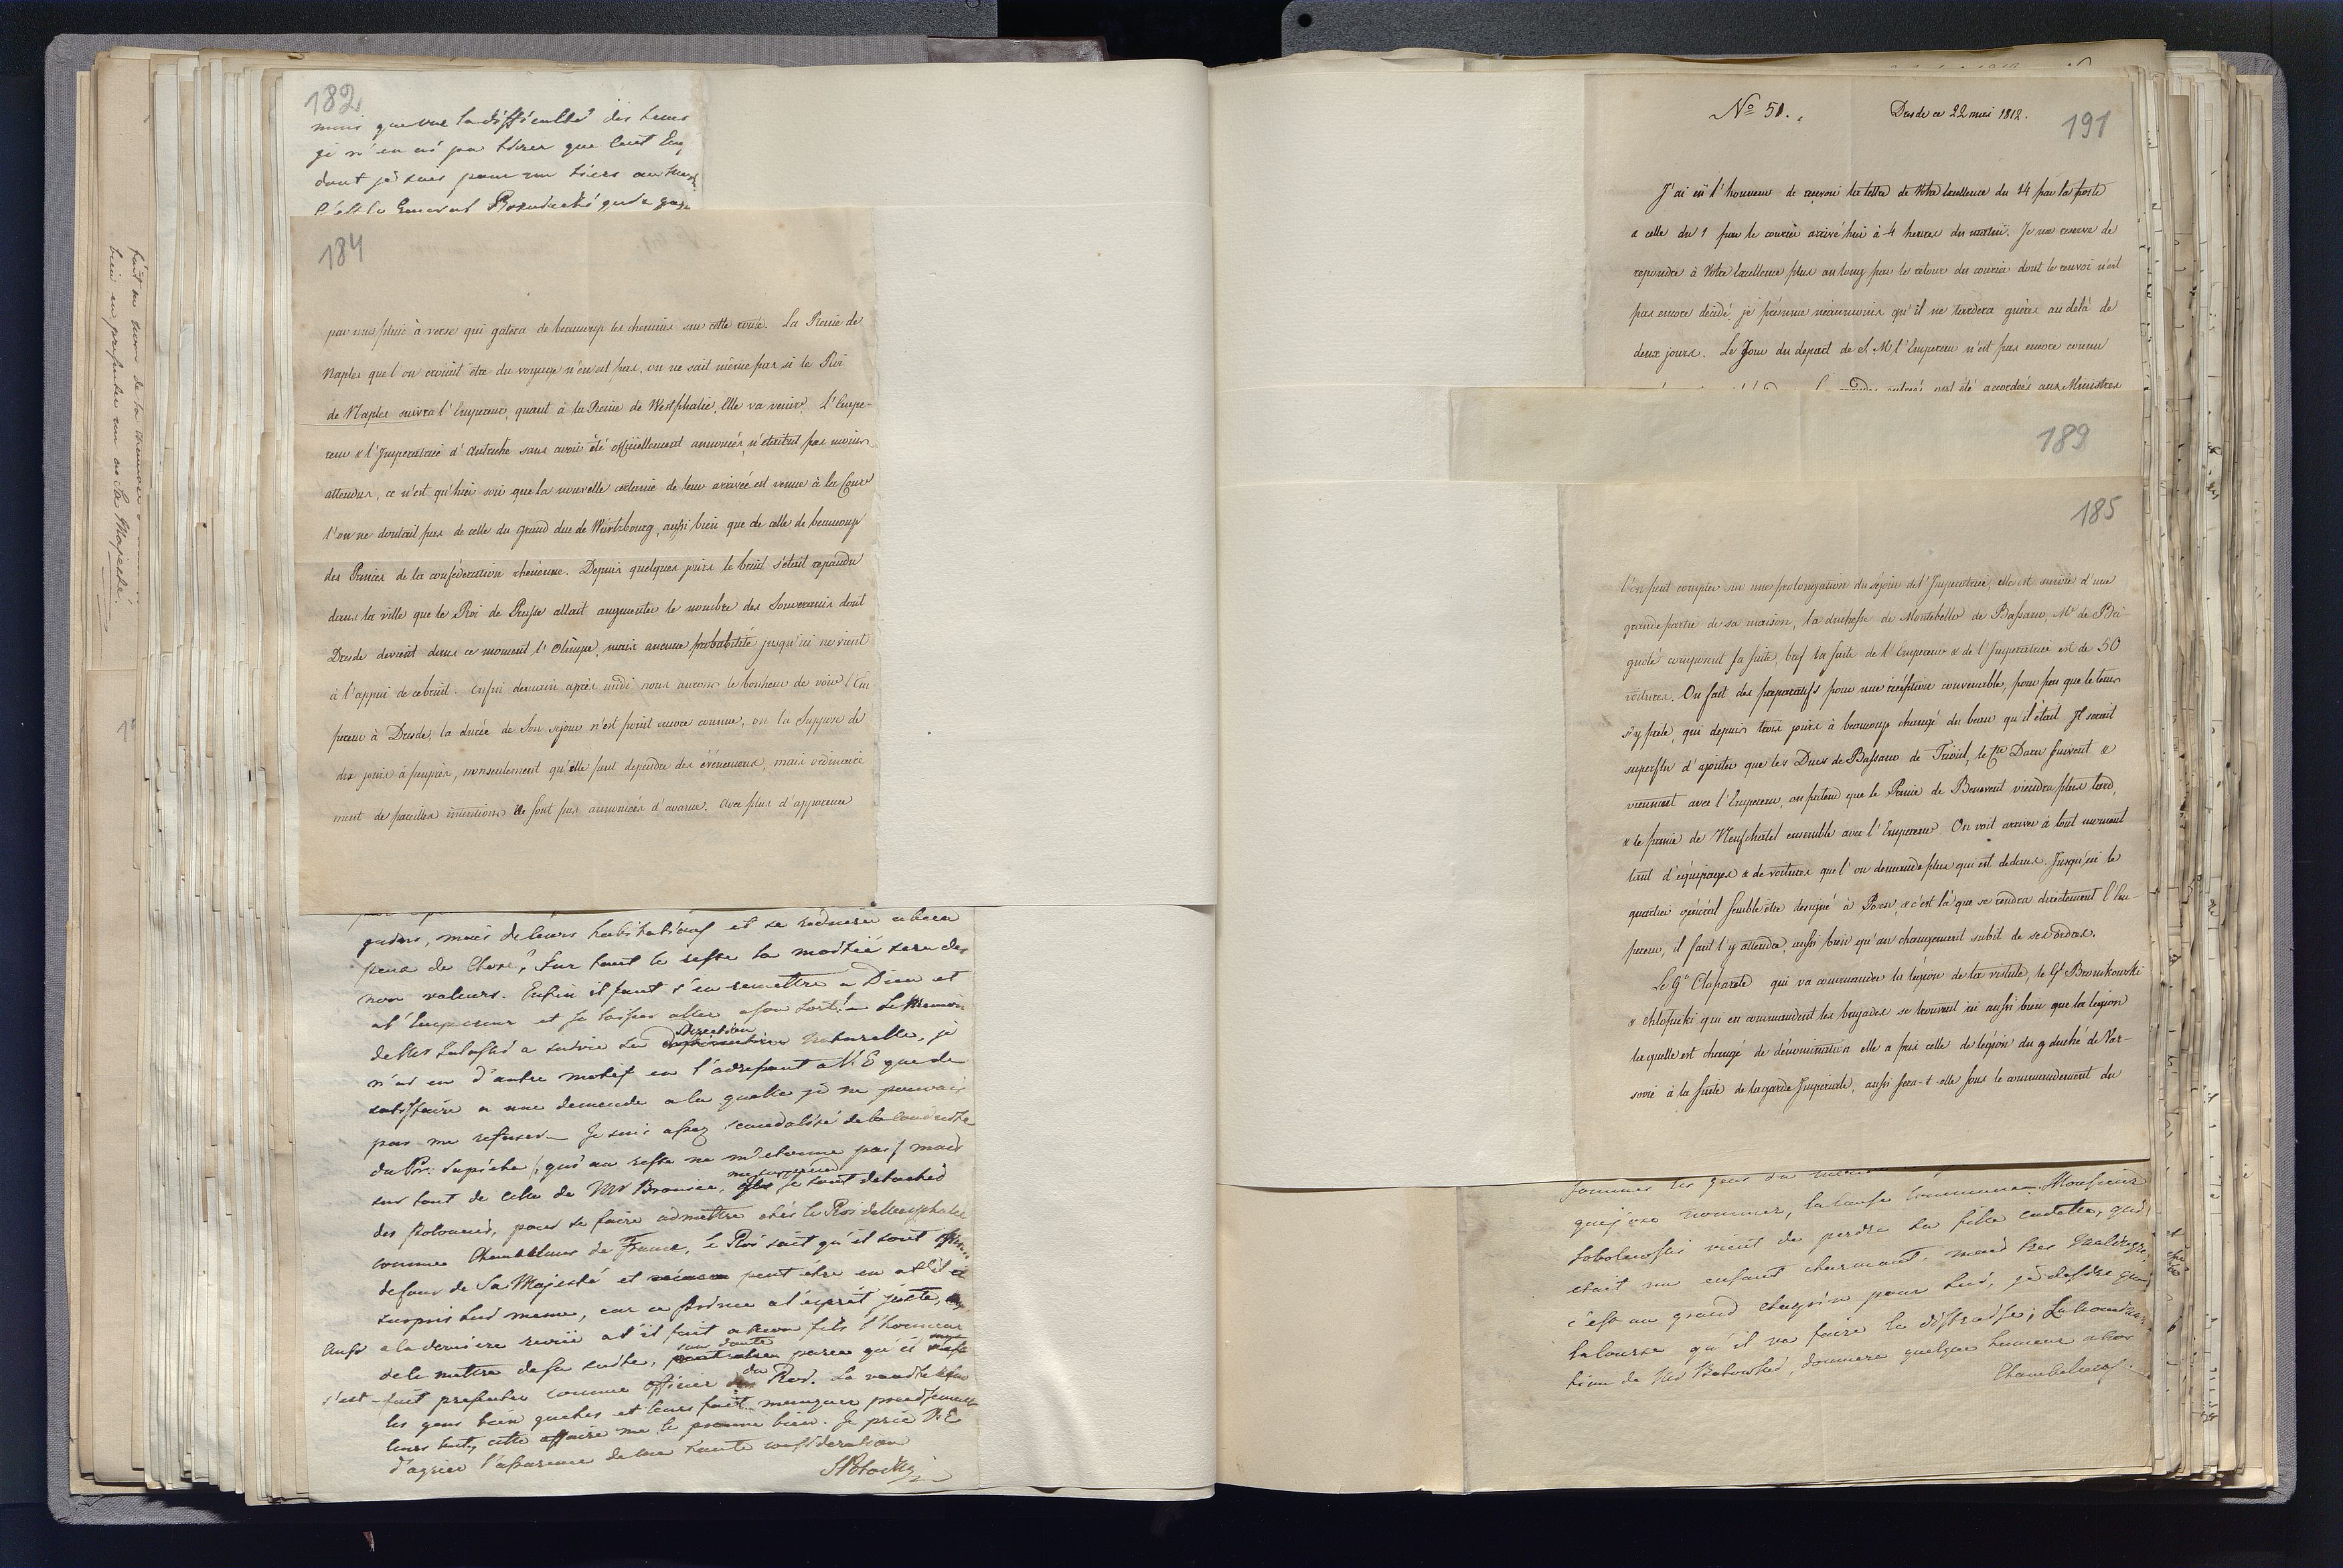 182
mais que vue la difficulté des tems
dont je suis pour un tiers au
C'est le General
184
par une pluie à verse qui gatera de beaucoup les chemins sur cette route. La Reine de
Naples que l'on croiait être du voyage n'en est pas, on ne sait même pas si le Roi
de Naples suivra l'Empereur, quant à la Reine de Westphalie, Elle va venir. L'Empe-
reur & l'Imperatrice d'Autriche sans avoir été officiellement annoncés, n'étaient pas moins
attendus, ce n'est qu'hier soir que la nouvelle certaine de leur arrivée est venue à la Cour
l'on ne doutait pas de celle du grand duc de Würtzbourg, aussi bien que de celle de beaucoup
des Princes de la confédération rhenienne. Depuis quelques jours le bruit s'était repandu
dans la ville que le Roi de Prusse allait augmenter le nombre des Souverains dont
Dresde devient dans ce moment l'Olimpe, mais aucune probabilité jusqu'ici ne vient
à l'appui de ce bruit. Enfin demain après midi nous aurons le bonheur de voir l'Em
pereur à Dresde, la durée de Son sejour n'est point encore connue, on la suppose de
dix jours à peuprès, nonseulement qu'elle peut dependre des événemens, mais ordinaire
ment de pareilles intentions ne sont pas annoncées d'avance. Avec plus d'apparence
mais de leurs habitations et se reduire a bien
peu de chose, sur tout le reste la moitié sera des
non valeurs. Enfin il faut s'en remettre a Dieu et
a l'Empereur et se laisser aller a son sort! Le Memoire
de Mr a suivie sa direction naturelle, je
n'ai eu d'autre motif en l'adressant a V. E que de
satisfaire a une demande a la quelle je ne pouvais
pas me refuser. Je suis assez scandalisé de la conduite
du Pr. Sapieha (qui au reste ne m'etonne pas) mais
sur tout de celle de Mr Bronice, me surprend se sont detachés
des Polonais, pour se faire admettre chés le Roi de Westphalie
comme Chambellans de France, le Roi sait qu'il sont
de ceux de Sa Majesté et peut etre en a t'il eté
surpris lui meme, car ce prince a l'esprit juste,
Aussi a la derniere revüe a t'il fait a mon fils l'honneur
de le mettre de sa suite, sans doute parce qu'il
s'est fait presenter comme officier du Roi. La vanité rend
les gens bien gauches et leurs fait manquer
leurs but, cette affaire me le prouve bien. Je prie V. E
d'agréer l'assurance de ma haute consideration
SPotocki
fait au sujet de la
bien en presenter un au Sa Majesté.
No 50. Dresde ce 22 mai 1812.
191
J'ai eü l'honneur de recevoir la lettre de Votre Excellence du 14 par la poste
& celle du 1 par le courier arrivé hier à 4 heures du matin. Je me reserve de
repondre à Votre Excellence plus au long par le retour du courier dont le renvoi n'est
pas encore décidé, je présume néanmoins qu'il ne tardera guères au delà de
deux jours. Le Jour du depart de S. M l'Empereur n'est pas encore connu
entrées ont été accordées aux Ministres
189
185
l'on peut compter sur une prolongation du séjour de l'Imperatrice, elle est suivie d'une
grande partie de sa maison, la duchesse de Montebello de Bassano, Me de Bri-
gnole composent sa suite, bref la suite de l'Empereur & de l'Imperatrice est de 50
voitures. On fait des preparatifs pour une réception convenable, pour peu que le tems
s'y prête, qui depuis trois jours à beaucoup changé du beau qu'il était. Il serait
superflu d'ajouter que les Ducs de Bassano de Frioul, le Cte Daru suivent &
viennent avec l'Empereur, on pretend que le Prince de Benevent viendra plus tard,
& le prince de Neufchatel ensemble avec l'Empereur. On voit arriver à tout moment
tant d'équipages & de voitures que l'on ne demande plus qui est dedans. Jusqu'ici le
quartier général semble être designé à Posen, & c'est là que se rendra directement l'Em-
pereur, il faut s'y attendre, aussi bien qu'au changement subit de ses ordres.
Le Gl Claparede qui va commander la légion de la vistule, le Gl Bronikowski
& Chlopicki qui en commandent les brigades se trouvent ici aussi bien que la legion
laquelle est changé de dénomination elle a pris celle de légion du g. duché de Var-
sovie à la suite de la garde Imperiale, aussi sera-t-elle sous le commendement du
sommes les gens du
que j'ose nommer, la cause commune. Monsieur
Sobolewski vient de perdre sa fille cadette, qui
etait un enfant charmant, mais tres
c'est un grand chagrin pour lui, je desire que
la course qu'il va faire le distraise; La
tion de Mr donnera quelque humeur a nos
Chambellans.